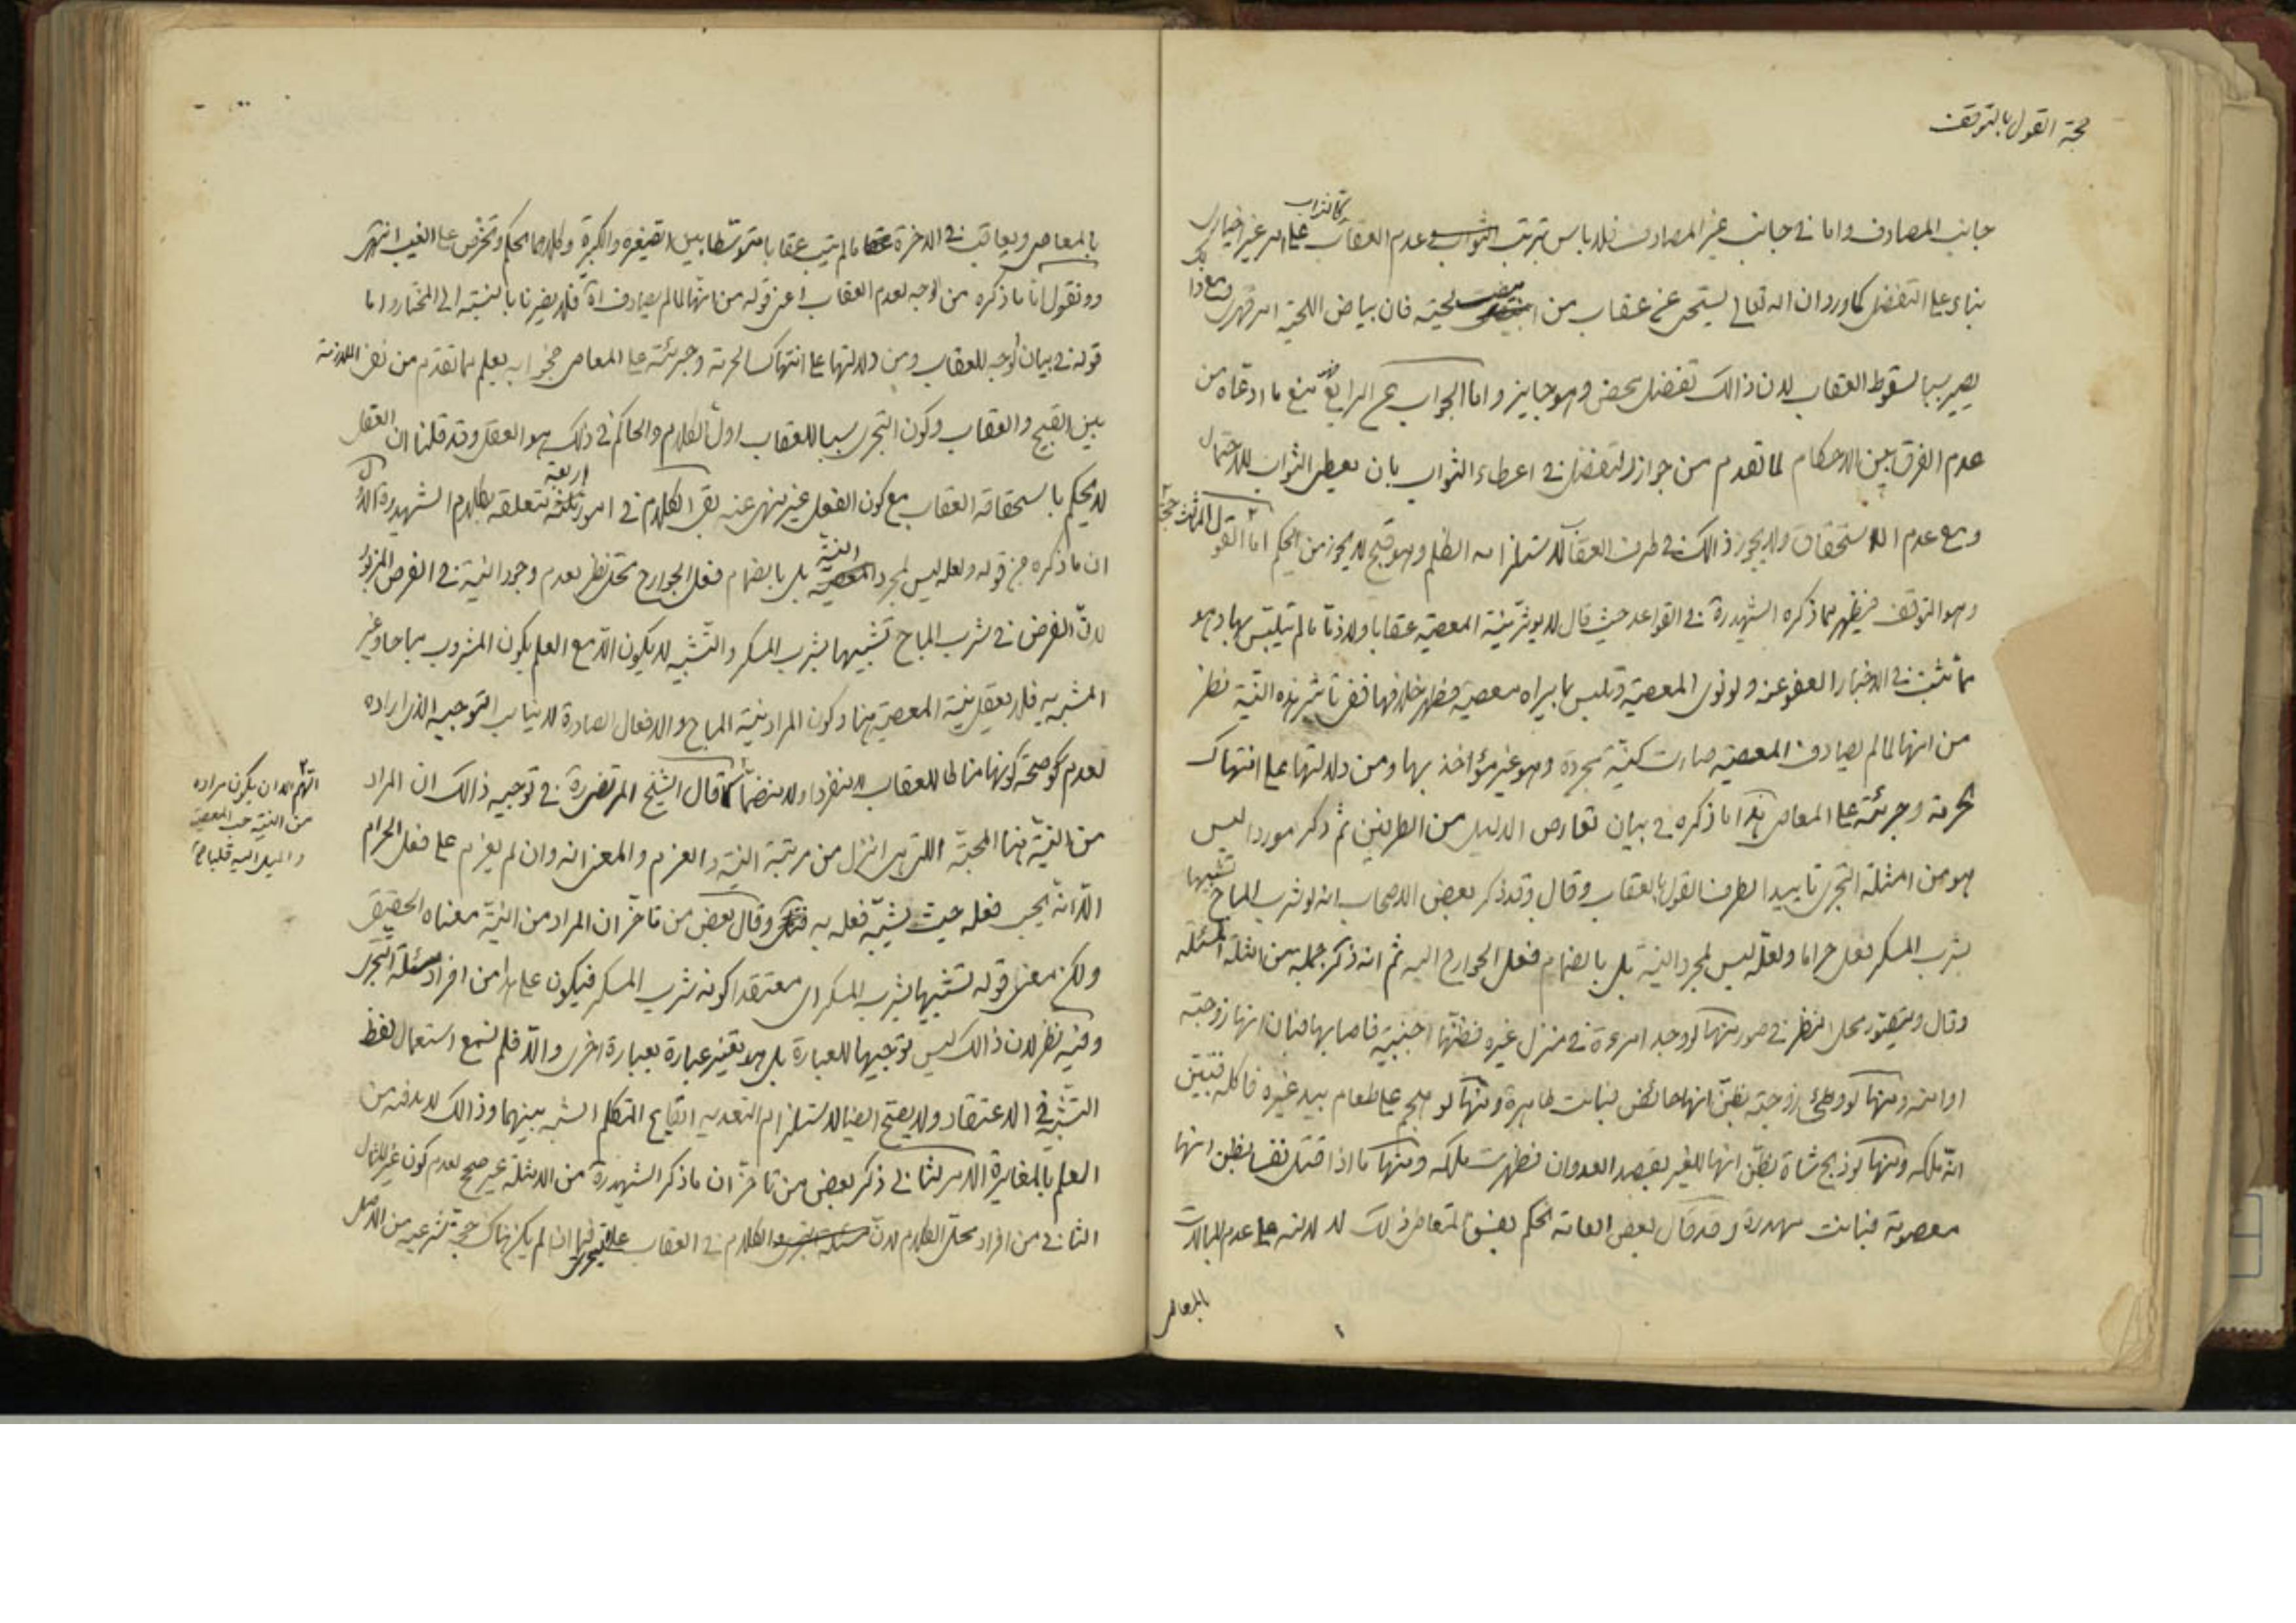 حجة القول بالتوقف
جانب المصادف واما في جانب غير المصادف فلا باس بترتب الثواب وعدم العقاب على امر غير اختياري
بناء على التفضل كما ورد ان الله تعالى يستحيى عن عقاب من ابيضت لحيته فان بياض اللحية امر قهري ومع ذا
يصير سببا لسقوط العقاب لان ذالك تفضل محض وهو جايز واما الجواب عن الرابع فبمنع ما ادعاه من
عدم الفرق بين الاحكام لما تقدم من جواز التفضل في اعطاء الثواب بان يعطى الثواب للاحتمال
ومع عدم الاستحقاق ولا يجوز ذالك في طرف العقاب لاستلزامه الظلم وهو قبيح لا يجوز من الحكيم اما القول الثالث
وهو التوقف فيظهر مما ذكره الشهيد ره في القواعد حيث قال لا يؤثر نية المعصية عقابا ولا ذما ما لم يتلبس بها وهو
مما ثبت في الاخبار العفو عنه ولو نوى المعصية وتلبس بما يراه معصية فظهر خلافها ففى تاثير هذه النية نظر
من انها لما لم يصادف المعصية صارت كنية مجردة وهو غير مؤاخذ بها ومن دلالتها على انتهاك
الحرمة وجرئته على المعاصى هذا ما ذكره في بيان تعارض الدليل من الطرفين ثم ذكر موردا ليس
هو من امثلة التجرى تاييدا لطرف القول بالعقاب وقال وقد ذكر بعض الاصحاب انه لو شرب المباح تشبيها
بشرب المسكر فعل حراما ولعله ليس لمجرد النية بل بانضمام فعل الجوارح اليه ثم انه ذكر جملة من امثلة المسئلة
وقال ويتصور محل النظر في صور منها لو وجد امرءة في منزل غيره فظنها اجنبية فاصابها فبان انها زوجته
او امته ومنها لو وطئ زوجته بظن انها حائض فبانت طاهرة ومنها لو هجم على طعام بيد غيره فاكله فتبين
انه ملكه ومنها لو ذبح شاة بظن انها للغير بقصد العدوان فظهرت ملكه ومنها ما اذا قتل نفسا بظن انها
معصومة فبانت مهدورة وقد قال بعض العامة الحكم بفسق المتعاطى ذلك لدلالته على عدم المبالات
بالمعاصى
بالمعاصى ويعاقب في الاخرة ما لم يتب عقابا متوسطا بين الصغيرة والكبيرة وكلاهما تحكم وتخرص على الغيب انتهى
ونقول اما ما ذكره من الوجه لعدم العقاب اعنى قوله من انها لما لم يصادف اه فلا يضرنا بالنسبة الى المختار واما
قوله في بيان الوجه للعقاب ومن دلالتها على انتهاك الحرمة وجرئته على المعاصى فجوابه يعلم مما تقدم من نفى الملازمة
بين القبيح والعقاب وكون التجرى سببا للعقاب اول الكلام والحاكم في ذلك هو العقل وقد قلنا ان العقل
لا يحكم باستحقاقه العقاب مع كون الفعل غير منهى عنه بقى الكلام في امور اربعة متعلقة بكلام الشهيد ره الاول
ان ما ذكره من قوله ولعله ليس لمجرد النية بل بانضمام فعل الجوارح محل نظر لعدم وجود النية في الفرض المزبور
لان الفرض في شرب المباح تشبيها بشرب المسكر والتشبيه لا يكون الا مع العلم بكون المشروب مباحا وغير
المشبه به فلا يعقل نية المعصية هنا وكون المراد نية المباح والافعال الصادرة لا يناسب التوجيه الذى اراده
لعدم صحة كونها مناطا للعقاب لا منفردا ولا منضما كما قال الشيخ المرتضى ره في توجيه ذالك ان المراد
من النية هنا المحبة اللتى هى انزل من مرتبة النية والعزم والمعنى انه وان لم يعزم على فعل الحرام
الا انه يحب فعله حيث يشبه فعله به وقال بعض من تاخر ان المراد من النية معناه الحقيقى
ولكن معنى قوله تشبيها بشرب المسكر اى معتقدا كونه شرب المسكر فيكون على هذا من افراد مسئلة التجرى
وفيه نظر لان ذالك ليس توجيها للعبارة بل هو تغيير عبارة بعبارة اخرى والا فلم نسمع استعمال لفظ
التشبيه في الاعتقاد ولا يصح ايضا لاستلزام التعدية ايقاع المتكلم الشبه بينهما وذالك لا بد فيه من
العلم بالمغايرة الامر الثانى ذكر بعض من تاخر ان ما ذكر الشهيد ره من الامثلة غير صحيح لعدم كون غير المثال
الثانى من افراد محل الكلام لان الكلام في العقاب على التجرى فيما ان لم يكن هناك حجة شرعية من الاصل
اللهم الا ان يكون مراده
من النية حب المعصية
والميل اليه قلبا